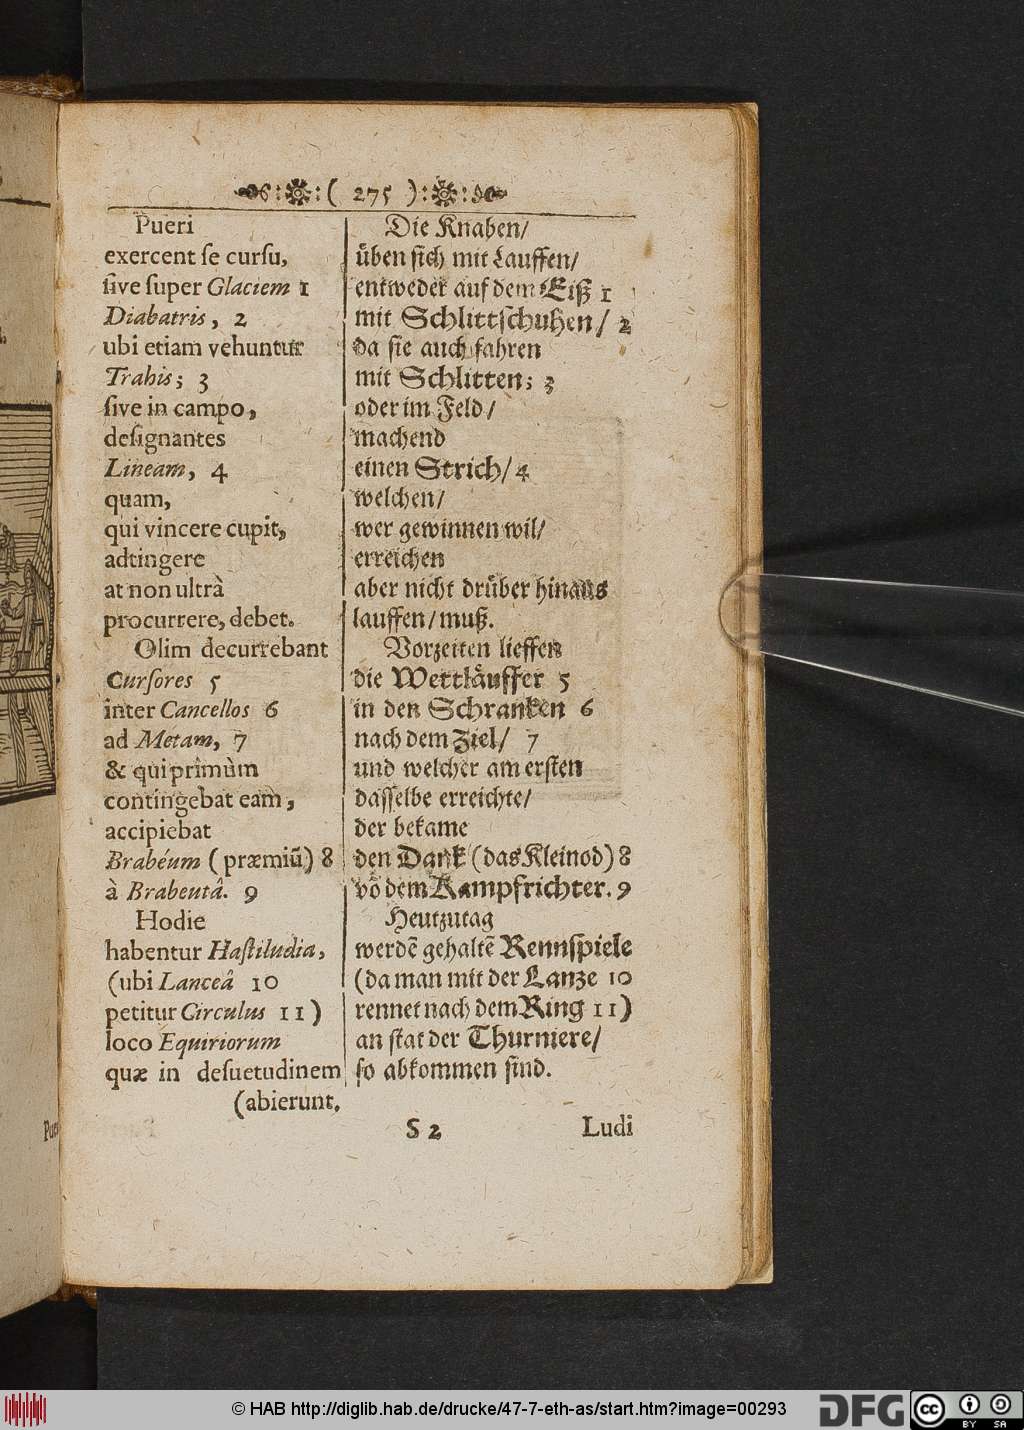 ( 275 )
Pueri
exercent ſe curſu,
ſive ſuper Glaciem 1
Diabatris, 2
ubi etiam vehuntur
Trahis; 3
ſive in campo,
deſignantes
Lineam, 4
quam,
qui vincere cupit,
adtingere
at non ultrà
procurrere, debet.
Olim decurrebant
Curſores 5
inter Cancellos 6
ad Metam, 7
& qui primùm
contingebat eam,
accipiebat
Brabéum (præmiū) 8
à Brabeutâ. 9
Hodie
habentur Haſtiludia,
(ubi Lanceâ 10
petitur Circulus 11)
loco Equiriorum
quæ in deſuetudinem
(abierunt.
Die Knaben/
üben ſich mit Lauffen/
entweder auf dem Eiß 1
mit Schlittſchuhen/ 2
da ſie auch fahren
mit Schlitten; 3
oder im Feld/
machend
einen Strich/ 4
welchen/
wer gewinnen wil/
erreichen
aber nicht drüber hinaus
lauffen/ muß.
Vorzeiten lieffen
die Wettläuffer 5
in den Schranken 6
nach dem Ziel/ 7
und welcher am erſten
daſſelbe erreichte/
der bekame
den Dank (das Kleinod) 8
võ dem Kampfrichter. 9
Heutzutag
werdẽ gehaltẽ Rennſpiele
(da man mit der Lanze 10
rennet nach dem Ring 11)
an ſtat der Thurniere/
ſo abkommen ſind.
S 2
Ludi
© HAB http://diglib.hab.de/drucke/47-7-eth-as/start.htm?image=00293
DFG
cc BY SA